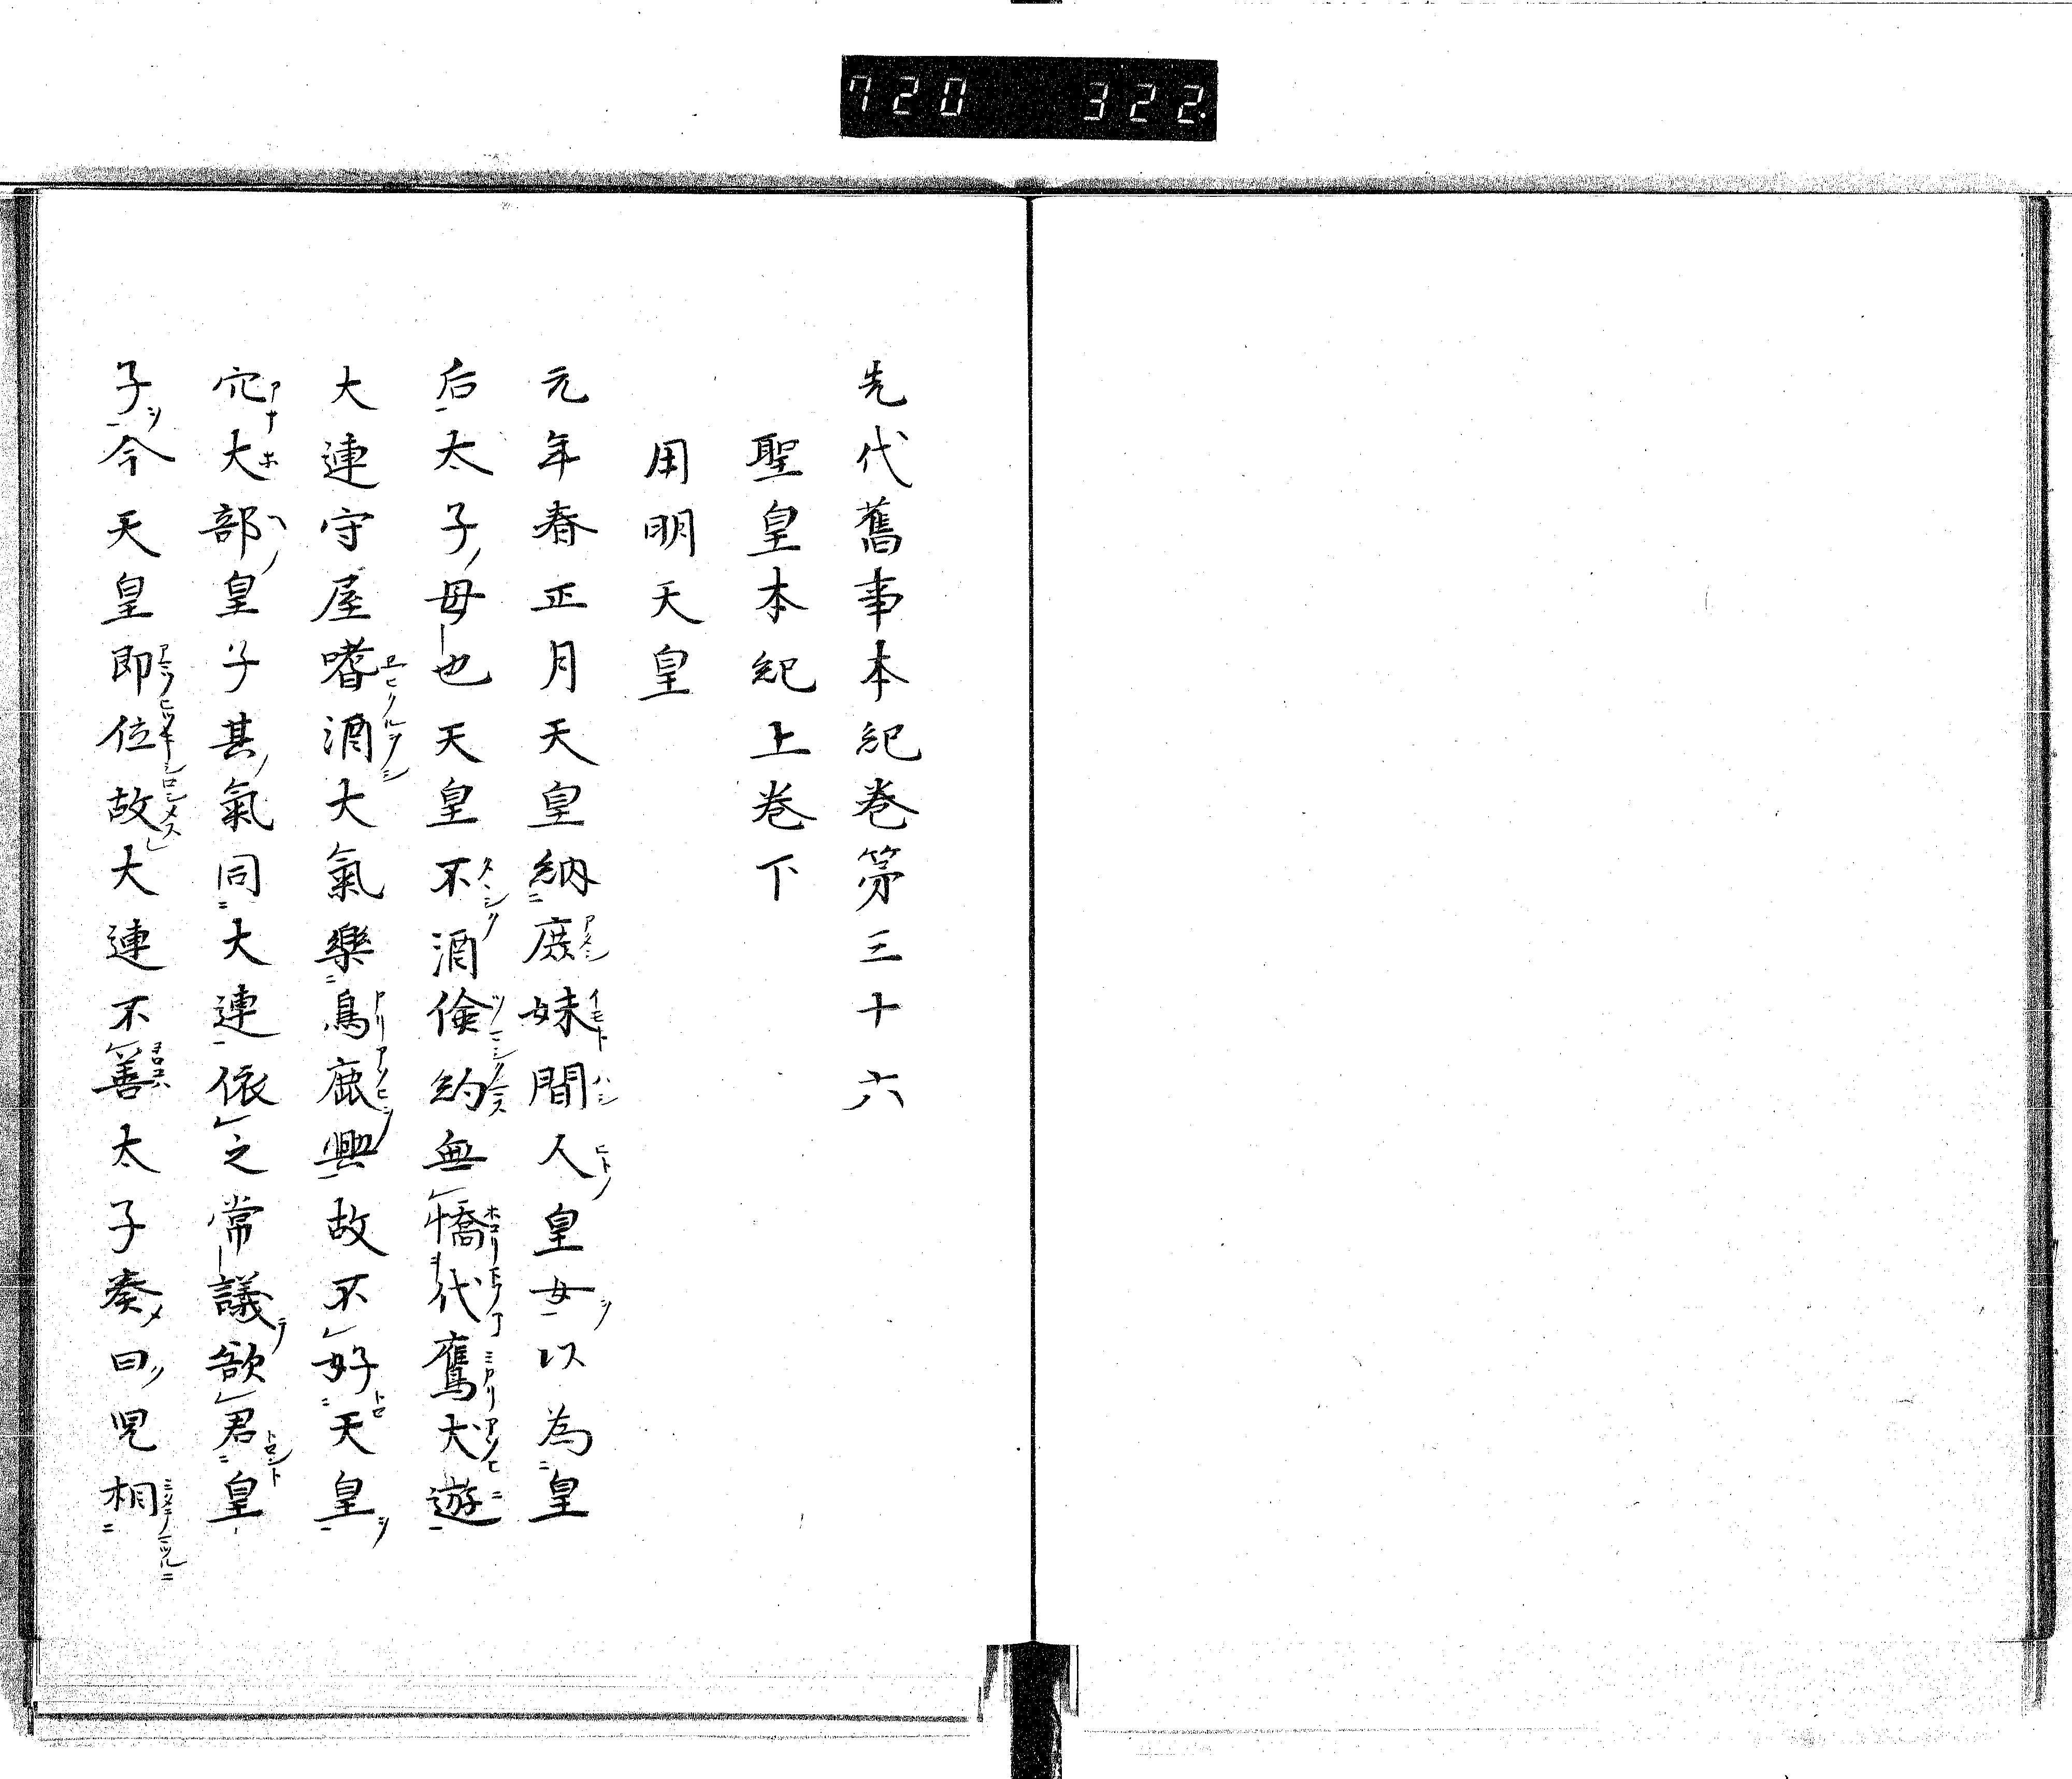 720 322
先代舊事本紀巻第三十六
聖皇本紀上巻下
用明天皇
元年春正月天皇納庶妹間人皇女以為皇
后太子母也天皇不酒儉約無憍代鷹犬遊
大連守屋嗜酒大氣樂鳥鹿興故不好天皇
穴大部皇子其氣同大連依之常議欲君皇
子今天皇即位故大連不善太子奏曰児相